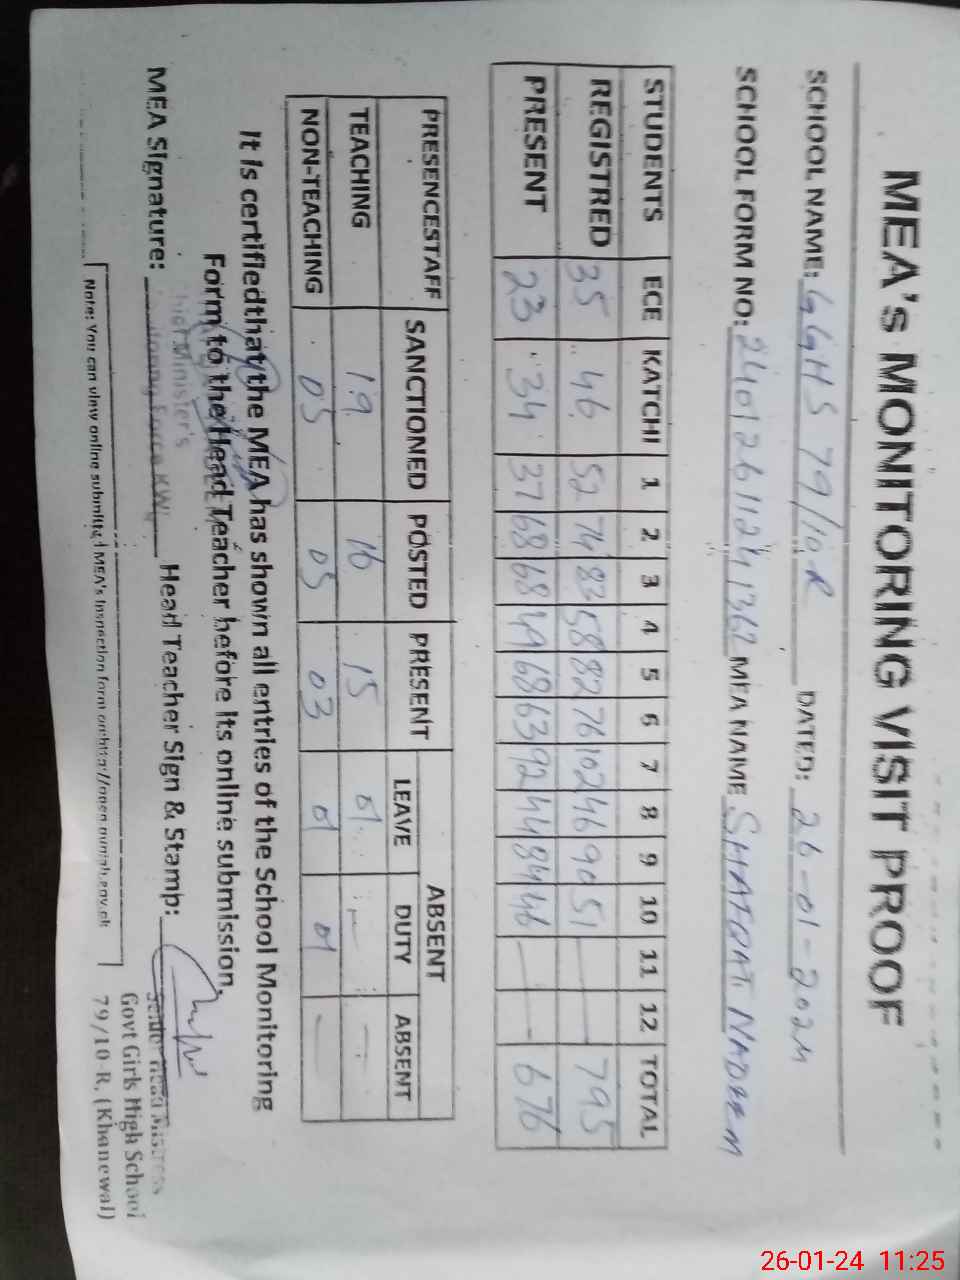 MEA's MONITORING VISIT PROOF
SCHOOL NAME: GGHS 79/10.R DATED: 26-01-2024
SCHOOL FORM NO: MEA NAME NADEEM
STUDENTS ECE KATCHI 1 2 3 4 5 6 7 8 9 10 11 12 TOTAL
REGISTRED 35 46 52 74 83 58 82 76 102 46 90 51 — — 795
PRESENT 23 34 37 68 68 49 68 63 92 44 84 46 — — 676
PRESENCESTAFF SANCTIONED POSTED PRESENT ABSENT
LEAVE DUTY ABSENT
TEACHING 19 16 15 01 — —
NON-TEACHING 05 05 03 01 01 —
It is certifiedthat the MEA has shown all entries of the School Monitoring
Form to the Head Teacher before its online submission.
MEA Signature: Head Teacher Sign & Stamp:
Minister's
Force KWL
Senior Head Mistress
Govt Girls High School
79/10-R, (Khanewal)
Note: You can view online submitted MEA's Inspection form on:http://open.punjab.gov.pk
26-01-24 11:25